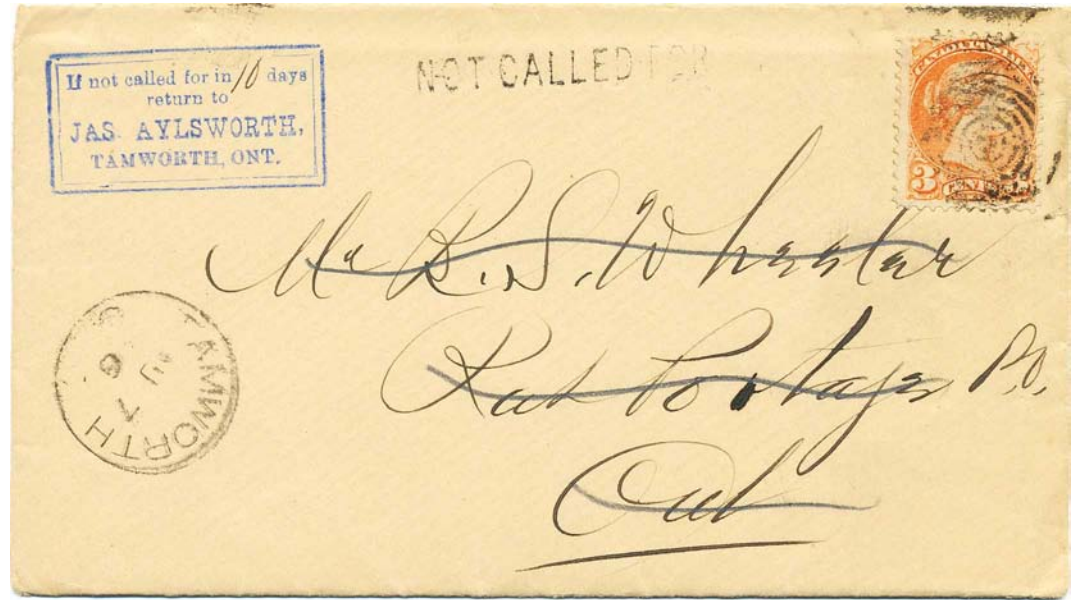 If not called for in 10 days
return to
JAS. AYLSWORTH,
TAMWORTH, ONT.
NOT CALLED FOR
CANADA POSTAGE
3 CENTS
Mr R. S. Wheeler
Rat Portage P.O.
Ont
TAMWORTH